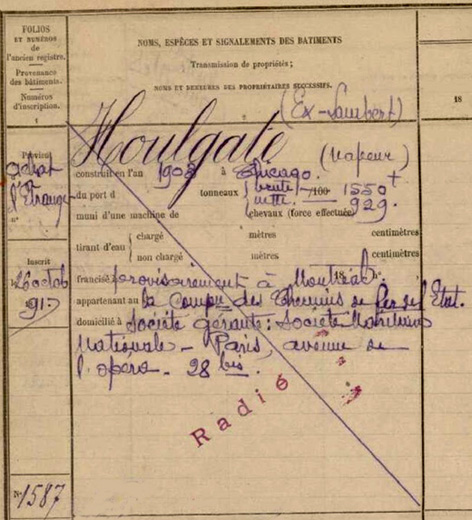 FOLIOS
ET NUMÉROS
de
l'ancien registre.
Provenance
des bâtiments.
Numéros
d'inscription.
1
NOMS, ESPÈCES ET SIGNALEMENTS DES BATIMENTS
Transmission de propriétés;
NOMS ET DEMEURES DES PROPRIÉTAIRES SUCCESSIFS.
2
18
(Ex-Lambert)
Houlgate
(vapeur)
Provint
achat
l'Etranger
n°
construit en l'an 1903 à Chicago.
du port d tonneaux { brute /100 1550 t
nette. 929.
muni d'une machine de chevaux (force effectuée)
tirant d'eau { chargé mètres centimètres
non chargé mètres centimètres
Inscrit
26 octob
francisé provisoirement à Montréal 18 n°
appartenant au la Compie des Chemins de fer de l'Etat.
domicilié à Société gérante: Société Maritime
Nationale - Paris, avenue de
l'opéra - 28 bis.
Radié
N° 1587